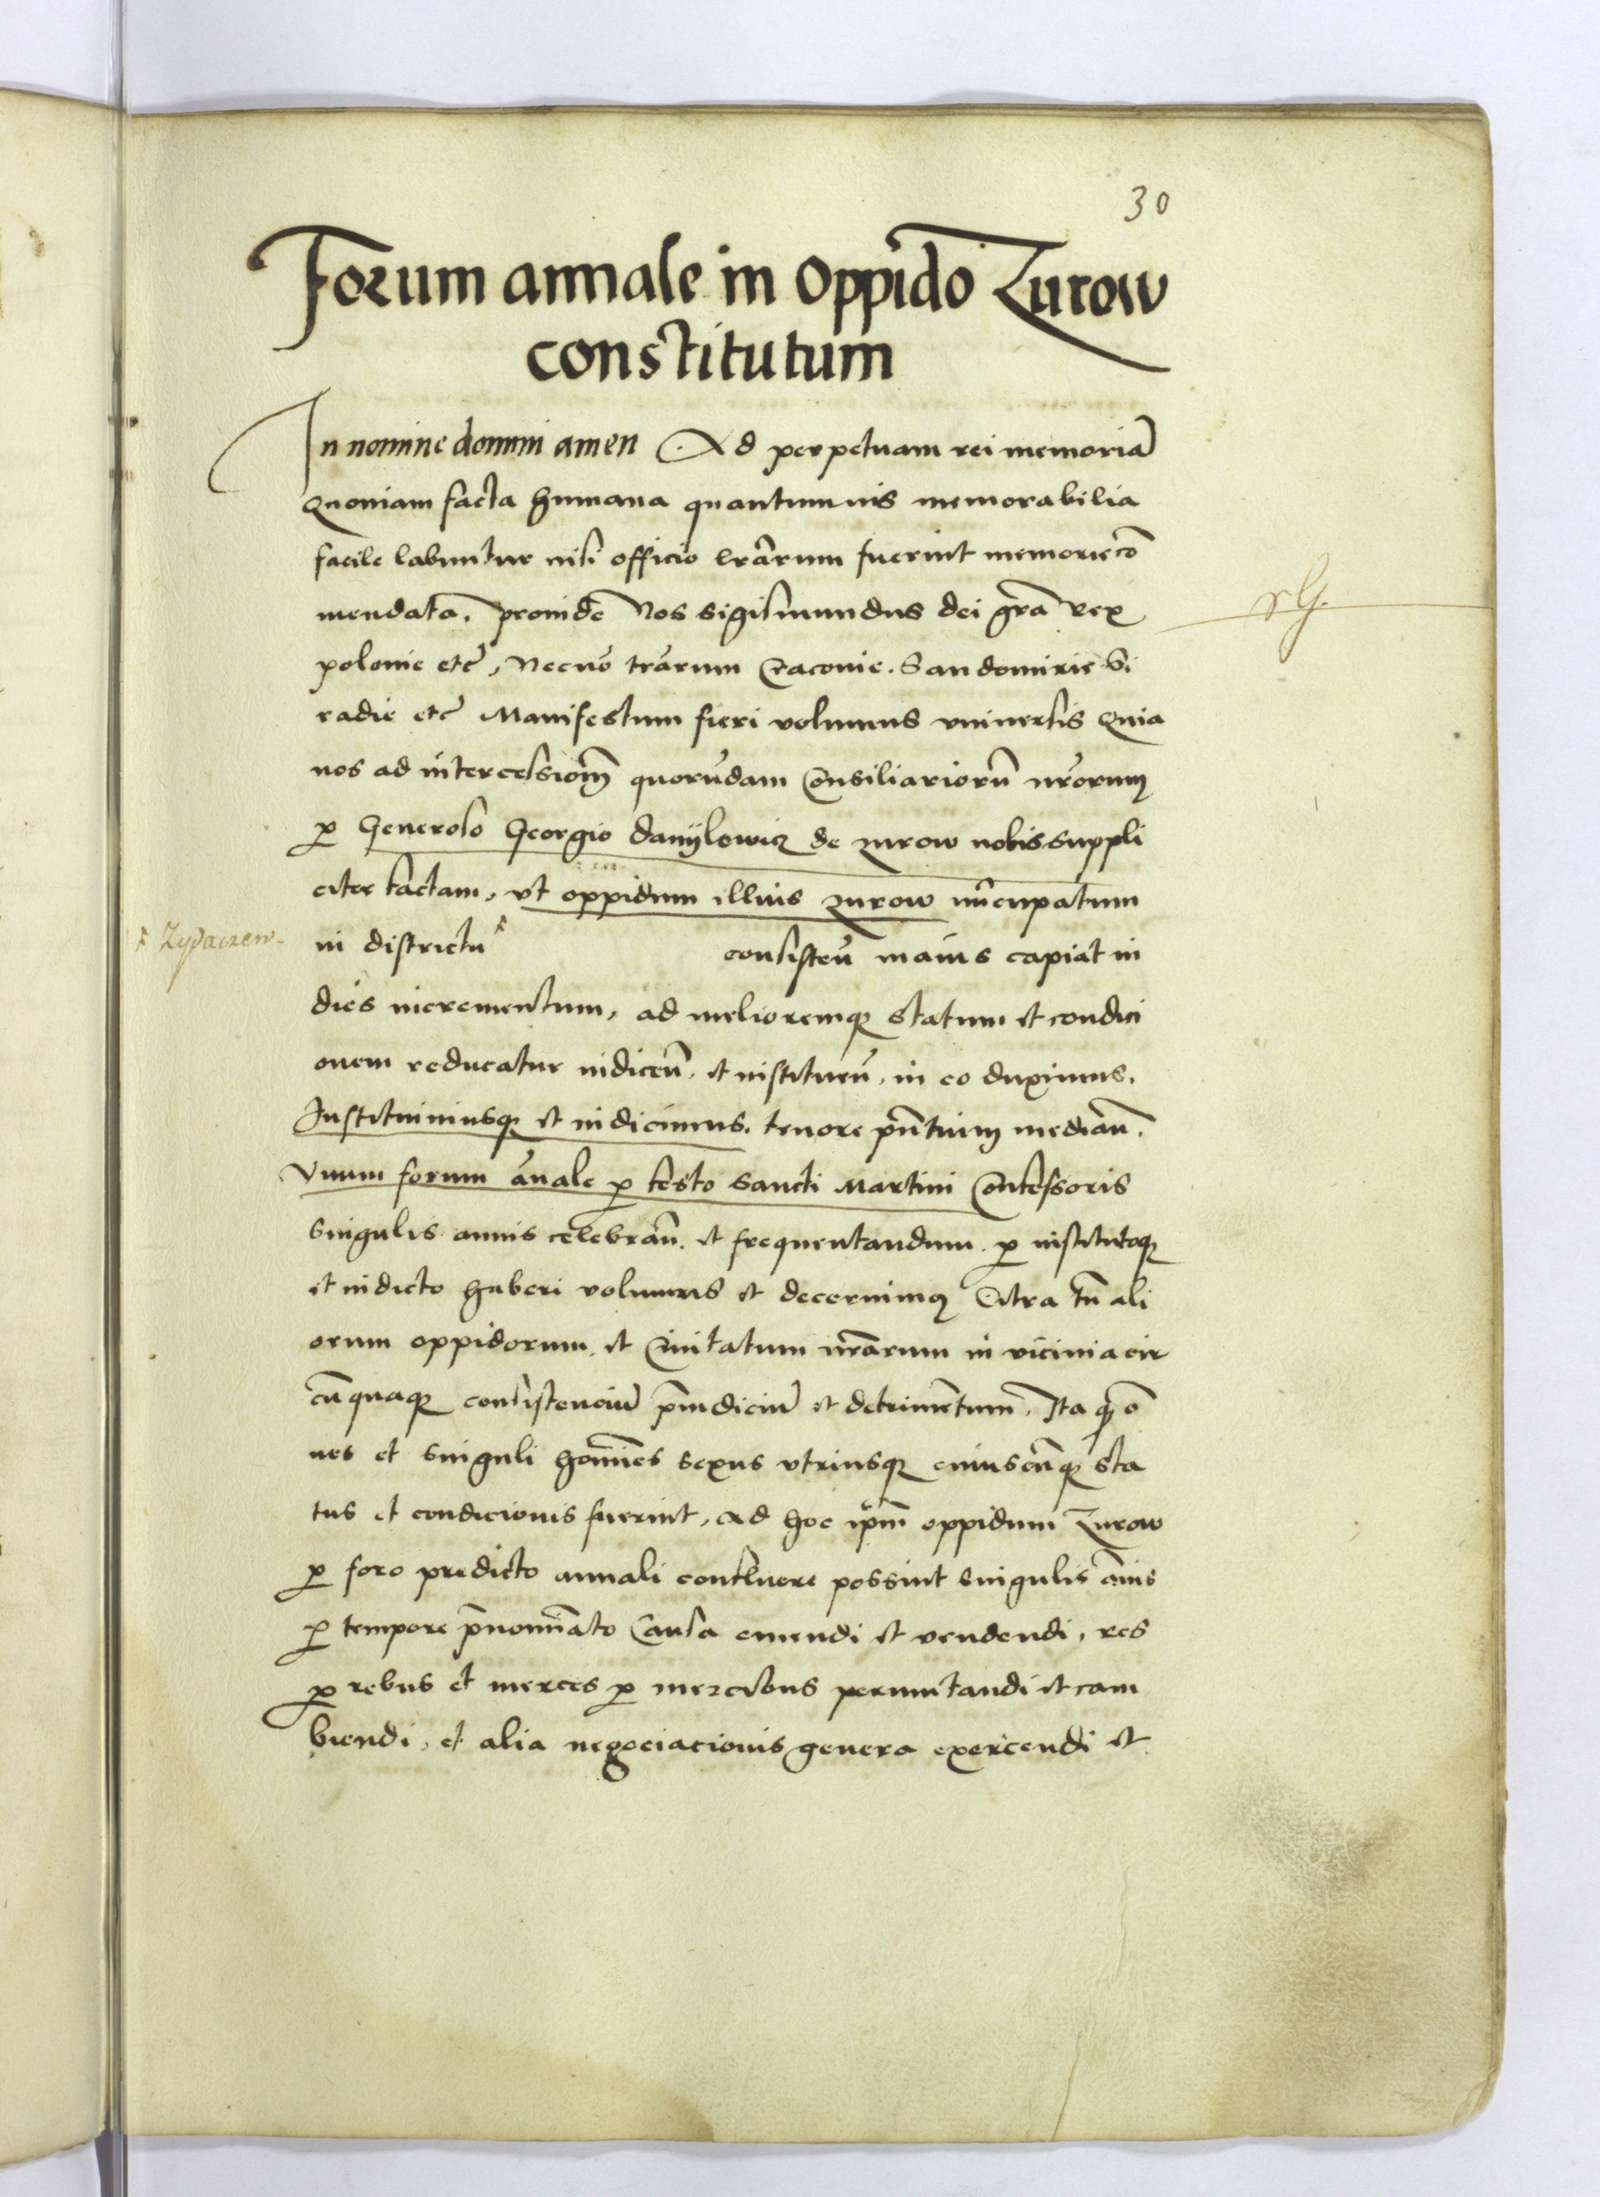 30
Forum annale in oppido Zurow
constitutum
In nomine domini amen. Ad perpetuam rei memoriā
Quoniam facta humana quantumuis memorabilia
facile labuntur nisi officio lrārum fuerint memorie cō
mendata, proinde Nos Sigismundus dei grā rex
polonie etc̄, Necnō trārum Cracovie. Sandomirie Si
radie etc̄ Manifestum fieri volumus vniuersis Quia
nos ad intercessionē quorūdam Consiliariorū nrōrum
p Generoso Georgio danijlowicz de zurow nobis suppli
citer factam, vt oppidum illius zurow nūcupatum
in districtu consisteñ maius capiat in
× Zydaczew-
dies incrementum, ad melioremq statum et condici
onem reducatur indiceñ. et instituēn. in eo duximus.
Instituimusq et indicimus. tenore pn̄tium mediañ.
Vnum forum ānale p festo sancti Martini Confessoris
singulis annis celebrañ. et frequentandum. p institutoq
et indicto haberi volumus et decernimq Citra tn̄ ali
orum oppidorum et Ciuitatum nrārum in vicinia cir
cūquaq consistenciū p̄iudiciū et detrimentum. Ita q ō
nes et singuli homīes sexus vtriusq cuiuscūq sta
tus et condicionis fuerint, ad hoc ip̄m oppidum Zurow
p foro predicto annali confluere possint singulis ānis
p tempore p̄nomīato Causa emendi et vendendi, res
p rebus et merces p mercibus permutandi et cam
biendi, et alia negociacionis genera exercendi et